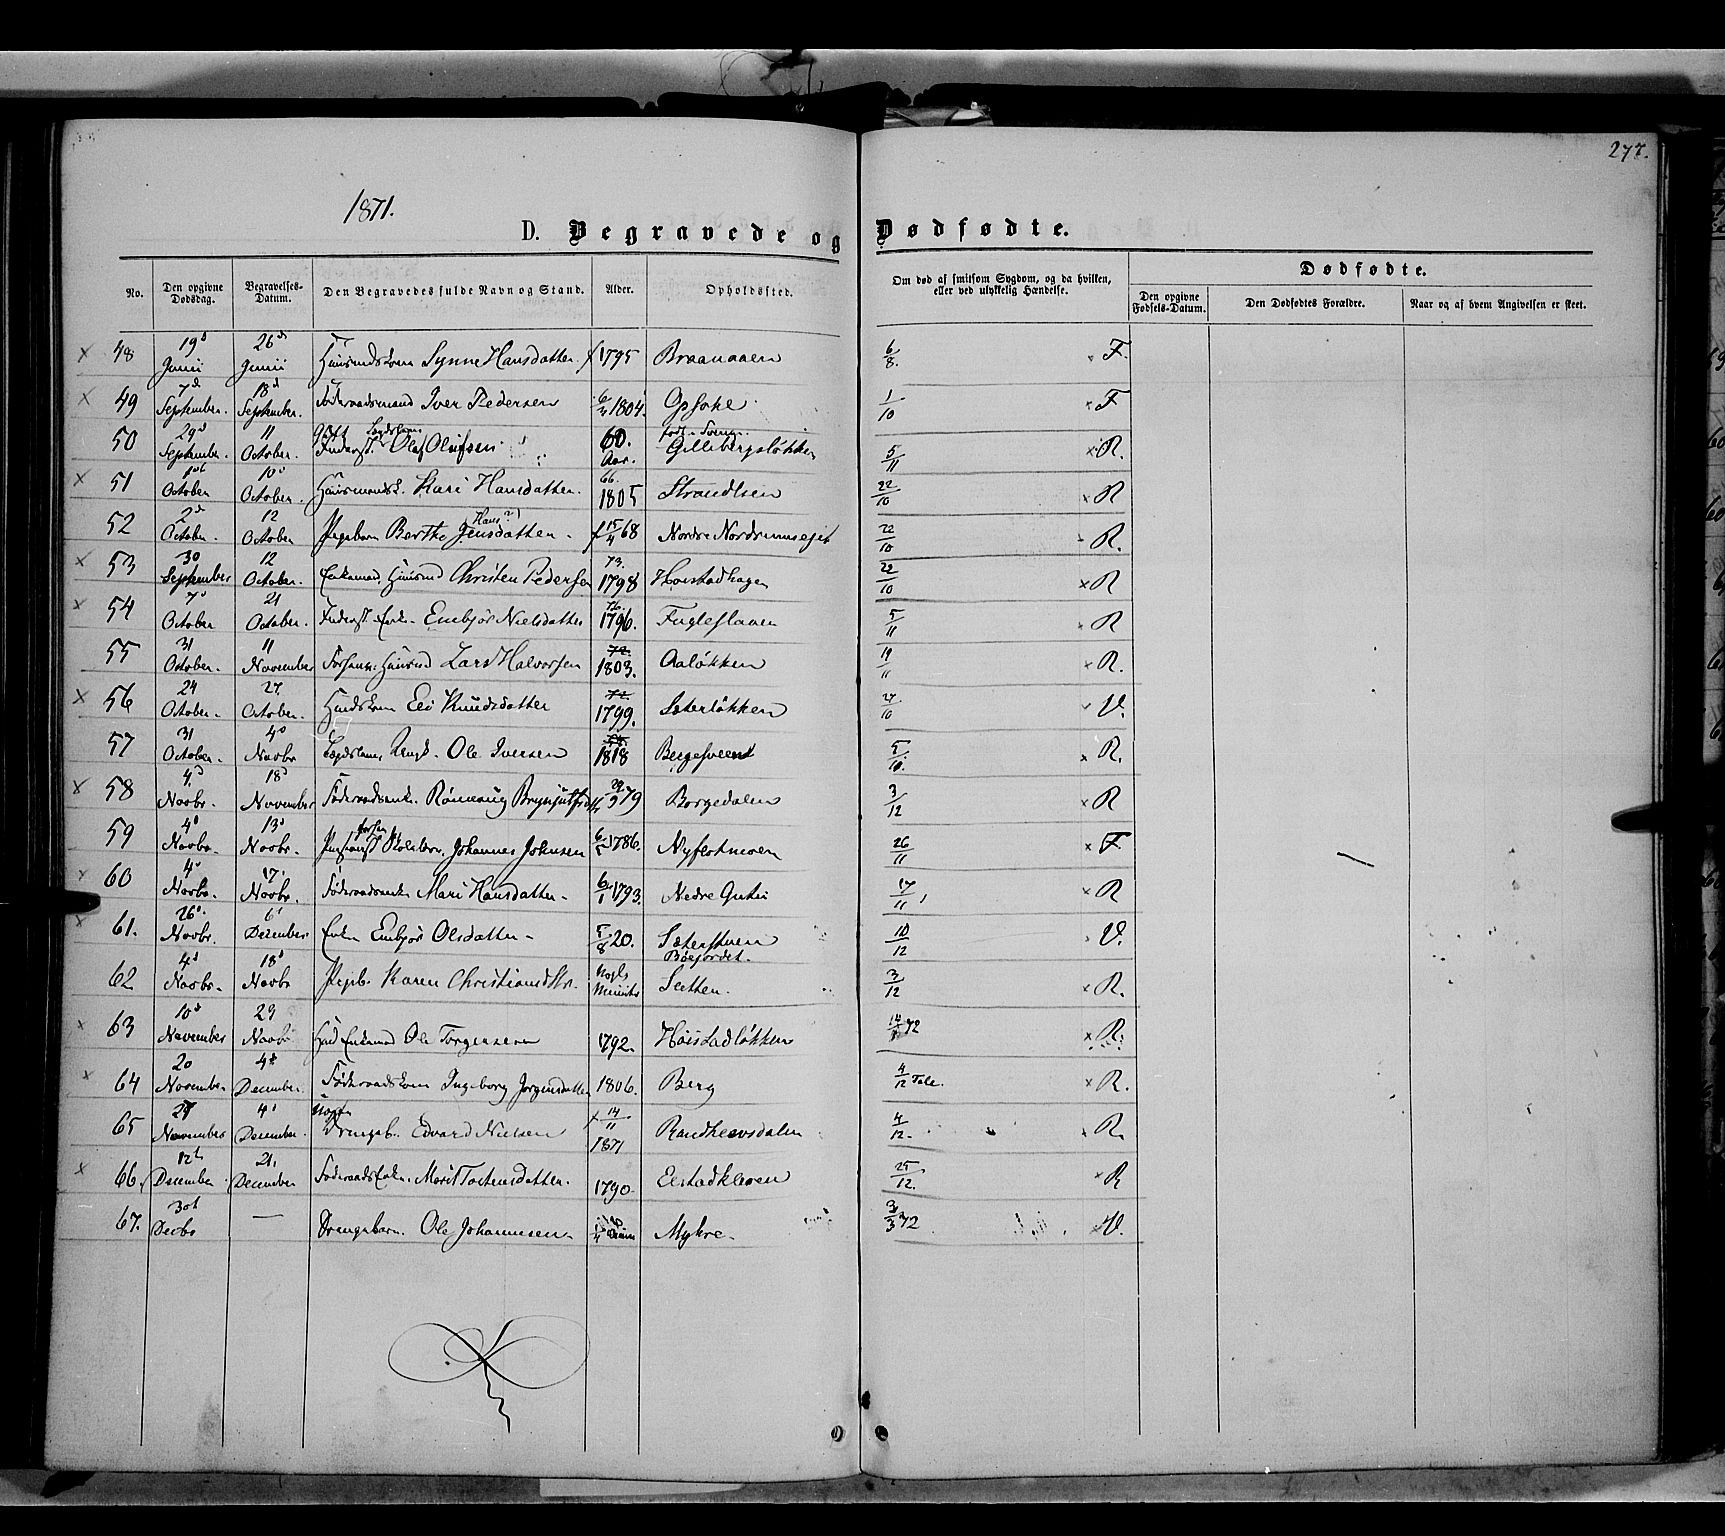 277.
1871.
D. Begravede og Dødfødte.
No. Den opgivne Dødsdag. Begravelses-Datum. Den Begravedes fulde Navn og Stand. Alder. Opholdssted. Om død af smitsom Sygdom, og da hvilken, eller ved ulykkelig Hændelse. Dødfødte.
Den opgivne Fødsels-Datum. Den Dødfødtes Forældre. Naar og af hvem Angivelsen er skeet.
48 19d Junii 26d Junii Synne Hansdatter f 1795 Braanaaen 6/8. F.
49 7d September. 18d September. Føderaadsmand Iver Pedersen 1804. Opsahl 1/10 F
50 29d September. 11 October. Inderst. Olaf Olufsen 60. Aar. Gillebergsløkken 5/11 R.
51 10d October 10d October. Kari Hansdatter. 66. 1805 Strandlien 22/10 R
52 2d October. 12 October Pigebarn Berthe Jensdatter. (Hans?) f 15/4 68 Nordre Nordrumseget 22/10 R.
53 30 September 12 October. Enkemd. Huusmd Christen Pedersen 73. 1798 Hoistadhagen 22/10 R
54 7d October 21 October. Inderst. Enke. Embjør Nielsdatter 1796. Fuglehaven 5/11 R
55 31 October. 11 November Huusmd Lars Halvorsen 1803. Aaløkken 11/11 R.
56 24 October. 27. October. Eli Knudsdatter 72 1799. Sæterløkken 27/10 V.
57 31 October. 4d Novbr Lægdslem, Ungk. Ole Iversen 1818 5/10. R.
58 4d Novbr. 18d November Føderaadsenke. 79 Borgedalen 3/12 R
59 4d Novbr. 13d Novbr. Johannes Johnsen 1786. 26/11 F
60 4d Novbr. 17. Novbr. Føderaadsenke Mari Hansdatter 6/1 1793. Nedre 17/11 R
61. 26d. Novbr. 6d December Enke Embjør Olsdatter 5/8 20. Sæterstuen 10/12 V.
62 4d Novbr. 18d Novbr Pigeb. Karen Christiansdtr. Nogle Minuter Bøejordet. 3/12 R.
63 10d November 23 Novbr Enkemd Ole Torgersen 1792. Hoistadløkken 72 R.
64 20 November 4d December. Føderaadskone Ingeborg Jørgensdatter 1806. Berg 4/12 R.
65 27 November 4d December. Drengeb. Edvard Nielsen f 14/11 1871 4/12. R.
66. 12te December 21. December Føderaadsenke. Marit Tostensdatter. 1790. 25/12. R
67. 30t Decbr — Drengebarn. Ole Johannesen Mykre. 3/3 72 V.